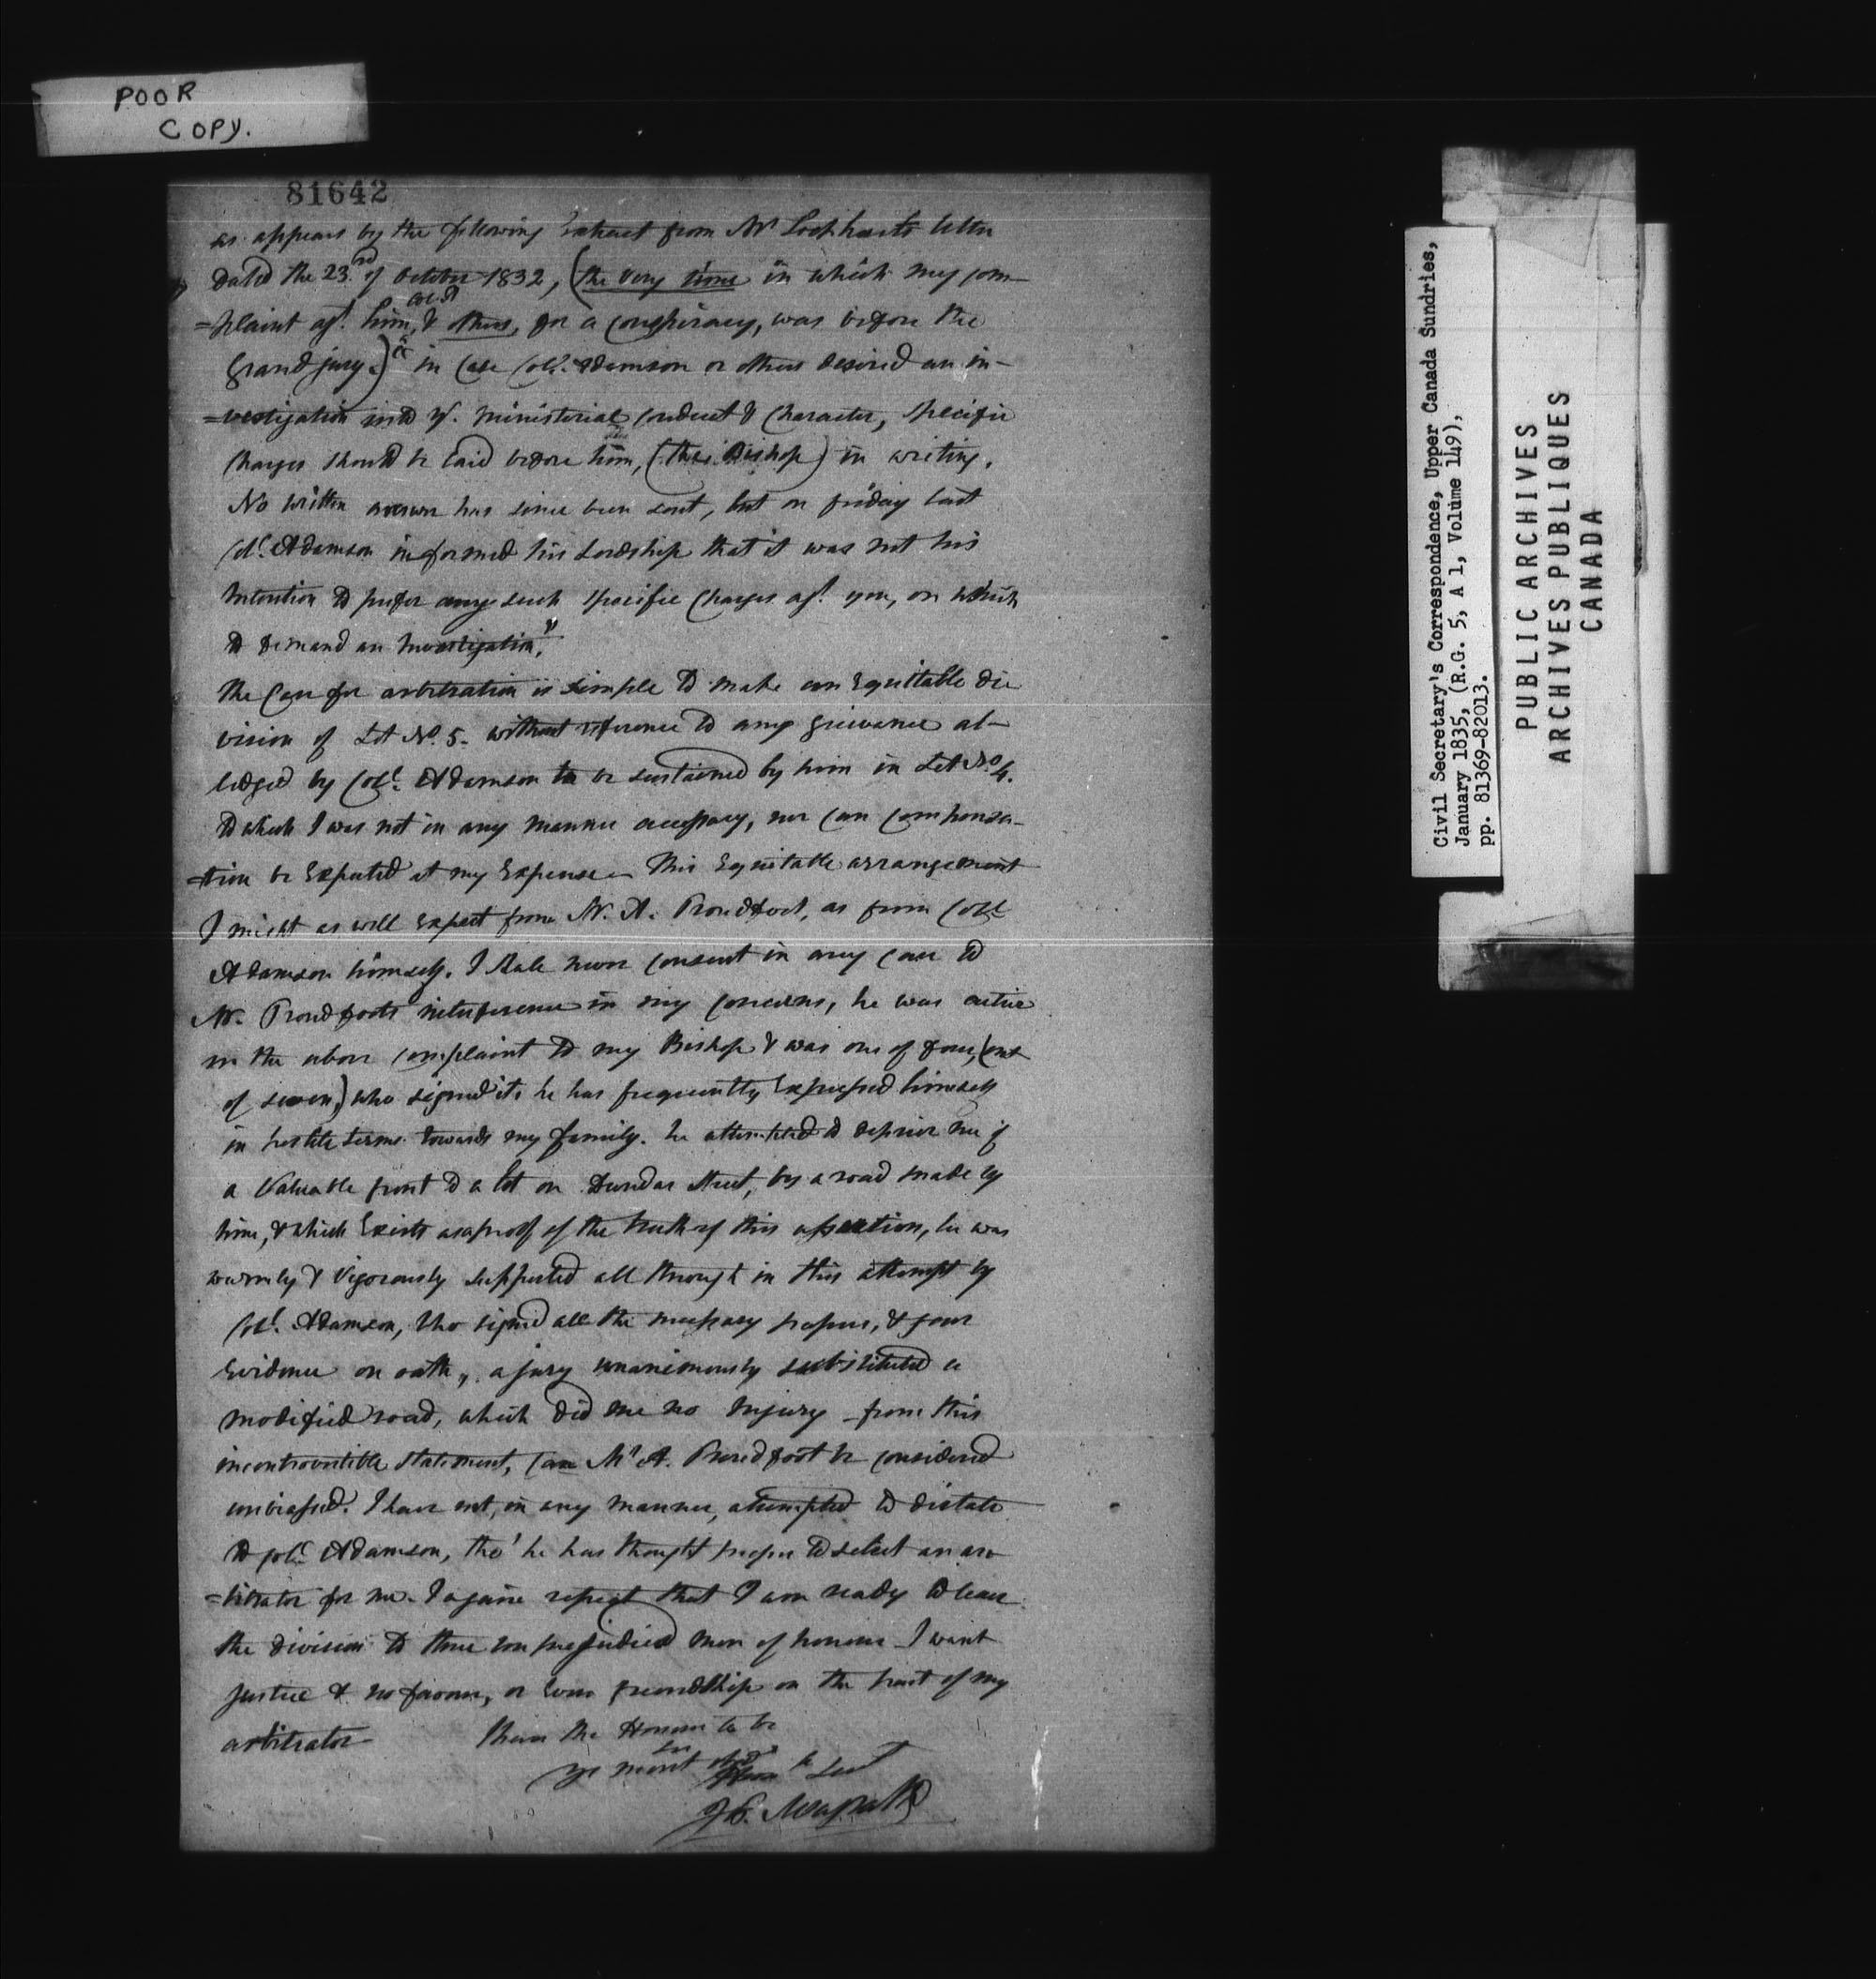 POOR
COPY.
81642
as appears by the following Extract from Mr Lockharts letter
Dated the 23.rd of October 1832, (the very time in which my com-
=plaint agt. him, Col. A & others, for a conspiracy, was before the
Grand jury.) in Case Coll. Adamson or others desired an in-
=vestigation into yr. ministerial conduct & Character, specific
Charges should be laid before him, (the Bishop) in writing.
No written answer has since been sent, but on friday last
Coll. Adamson informed his Lordship that it was not his
Intention to prefer any such specific Charges agt. you, on which
to demand an Investigation."
The Case for arbitration is simple to make an Equitable di
vision of Lot No. 5. without reference to any grievance al-
ledged by Coll. Adamson to be sustained by him in Lot No. 4.
to which I was not in any manner accessary, nor can compensa-
=tion be Expected at my Expense – This Equitable arrangement
I might as well Expect from Mr. A. Proudfoot, as from Coll.
Adamson himself. I shale never consent in any case to
Mr. Proudfoots interference in my concerns, he was active
in the above complaint to my Bishop & was one of four, (out
of seven,) who signed it, he has frequently Expressed himself
in hostile terms towards my family. he attempted to deprive me of
a Valuable front to a lot on Dundas Street, by a road made by
him, & which Exists as a proof of the truth of this assertion, he was
warmly & Vigorously supported all through in this attempt by
Coll. Adamson, who signed all the necessary papers, & gave
Evidence on oath, a jury unanimously substituted a
modified road, which did me no Injury – from this
incontrovertible statement, can Mr A. Proudfoot be considered
unbiassed. I have not, in any manner, attempted to dictate
to Coll. Adamson, tho' he has thought proper to select an ar-
=bitrator for me. I again repeat that I am ready to leave
the division to three unprejudiced men of honour – I want
Justice & no favour, or Even friendship on the part of my
arbitrator – I have the Honour to be
Sir
yr most obdt h Sert
Js. Magrath
Civil Secretary's Correspondence, Upper Canada Sundries,
January 1835, (R.G. 5, A 1, Volume 149),
pp. 81369-82013.
PUBLIC ARCHIVES
ARCHIVES PUBLIQUES
CANADA